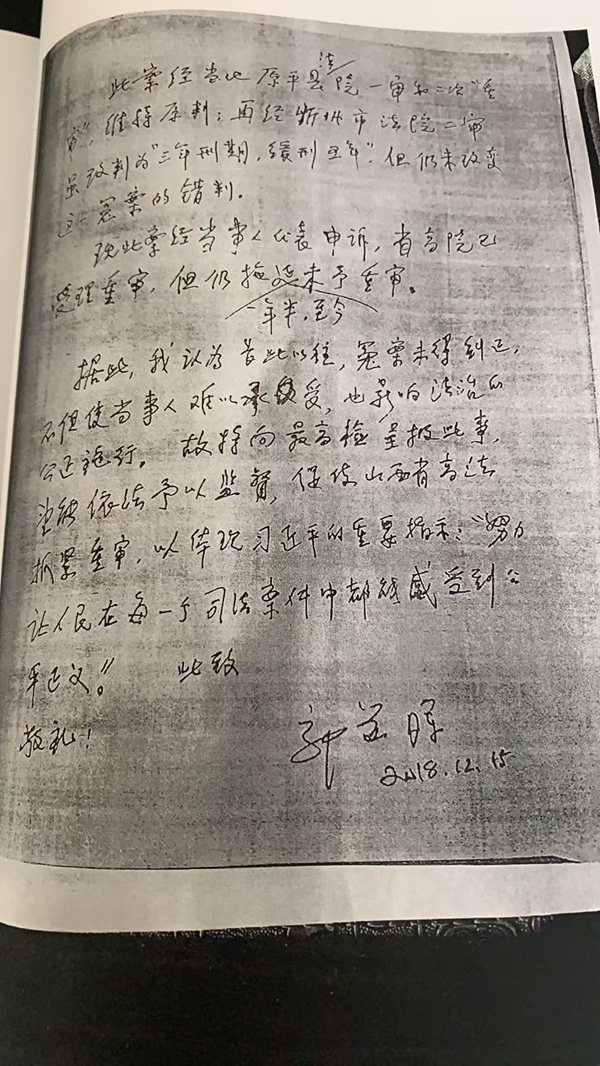 此案经当地原平县法院一审和二次“重
审”，维持原判；再经忻州市法院二审
虽改判为“三年刑期，缓刑五年”，但仍未改变
这一冤案的错判。
现此案经当事人代表申诉，省高院已
受理重审，但仍拖延未予重审。
一年半，至今
据此，我认为长此以往，冤案未得到正，
不但使当事人难以承受，也影响法治的
公正施行。故特向最高检呈报此事，
望能依法予以监督，促使山西省高法
抓紧重审，以体现习近平的重要指示：“努力
让人民在每一个司法案件中都能感受到公
平正义。”此致
敬礼！
郭
2018.12.15